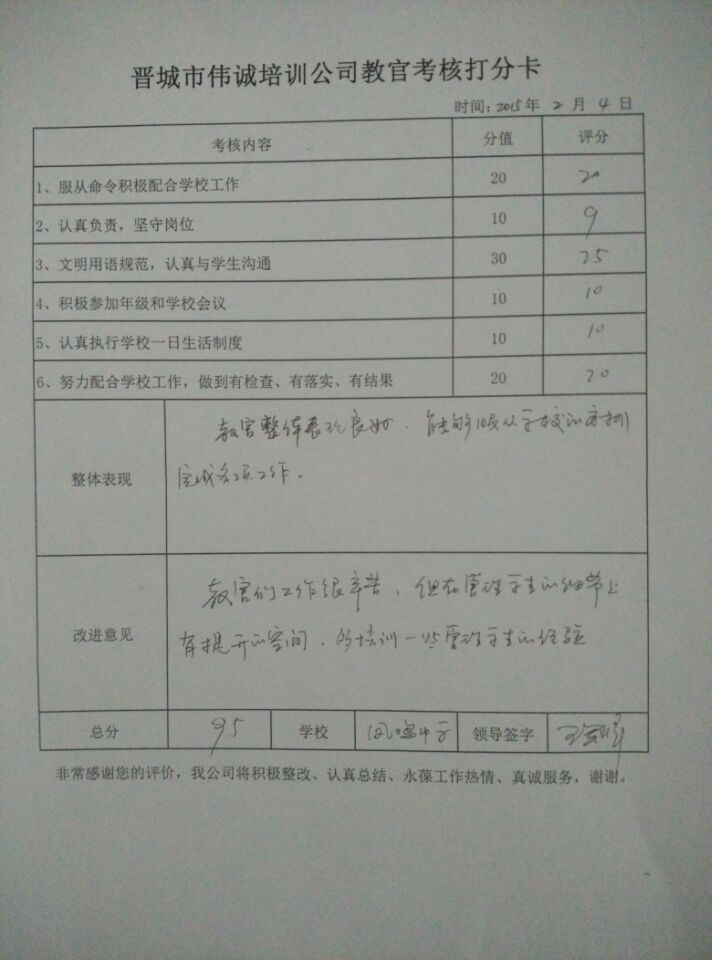 晋城市伟诚培训公司教官考核打分卡
时间：2015年 2 月 4 日
考核内容 分值 评分
1、服从命令积极配合学校工作 20 20
2、认真负责，坚守岗位 10 9
3、文明用语规范，认真与学生沟通 30 25
4、积极参加年级和学校会议 10 10
5、认真执行学校一日生活制度 10 10
6、努力配合学校工作，做到有检查、有落实、有结果 20 20
教官整体表现良好，能够服从学校的安排
整体表现
完成各项工作。
教官们工作很辛苦、但在管理学生的细节上
改进意见
有提升的空间、多培训一些管理学生的经验
总分 95 学校 凤鸣中学 领导签字
非常感谢您的评价，我公司将积极整改、认真总结、永葆工作热情、真诚服务，谢谢。